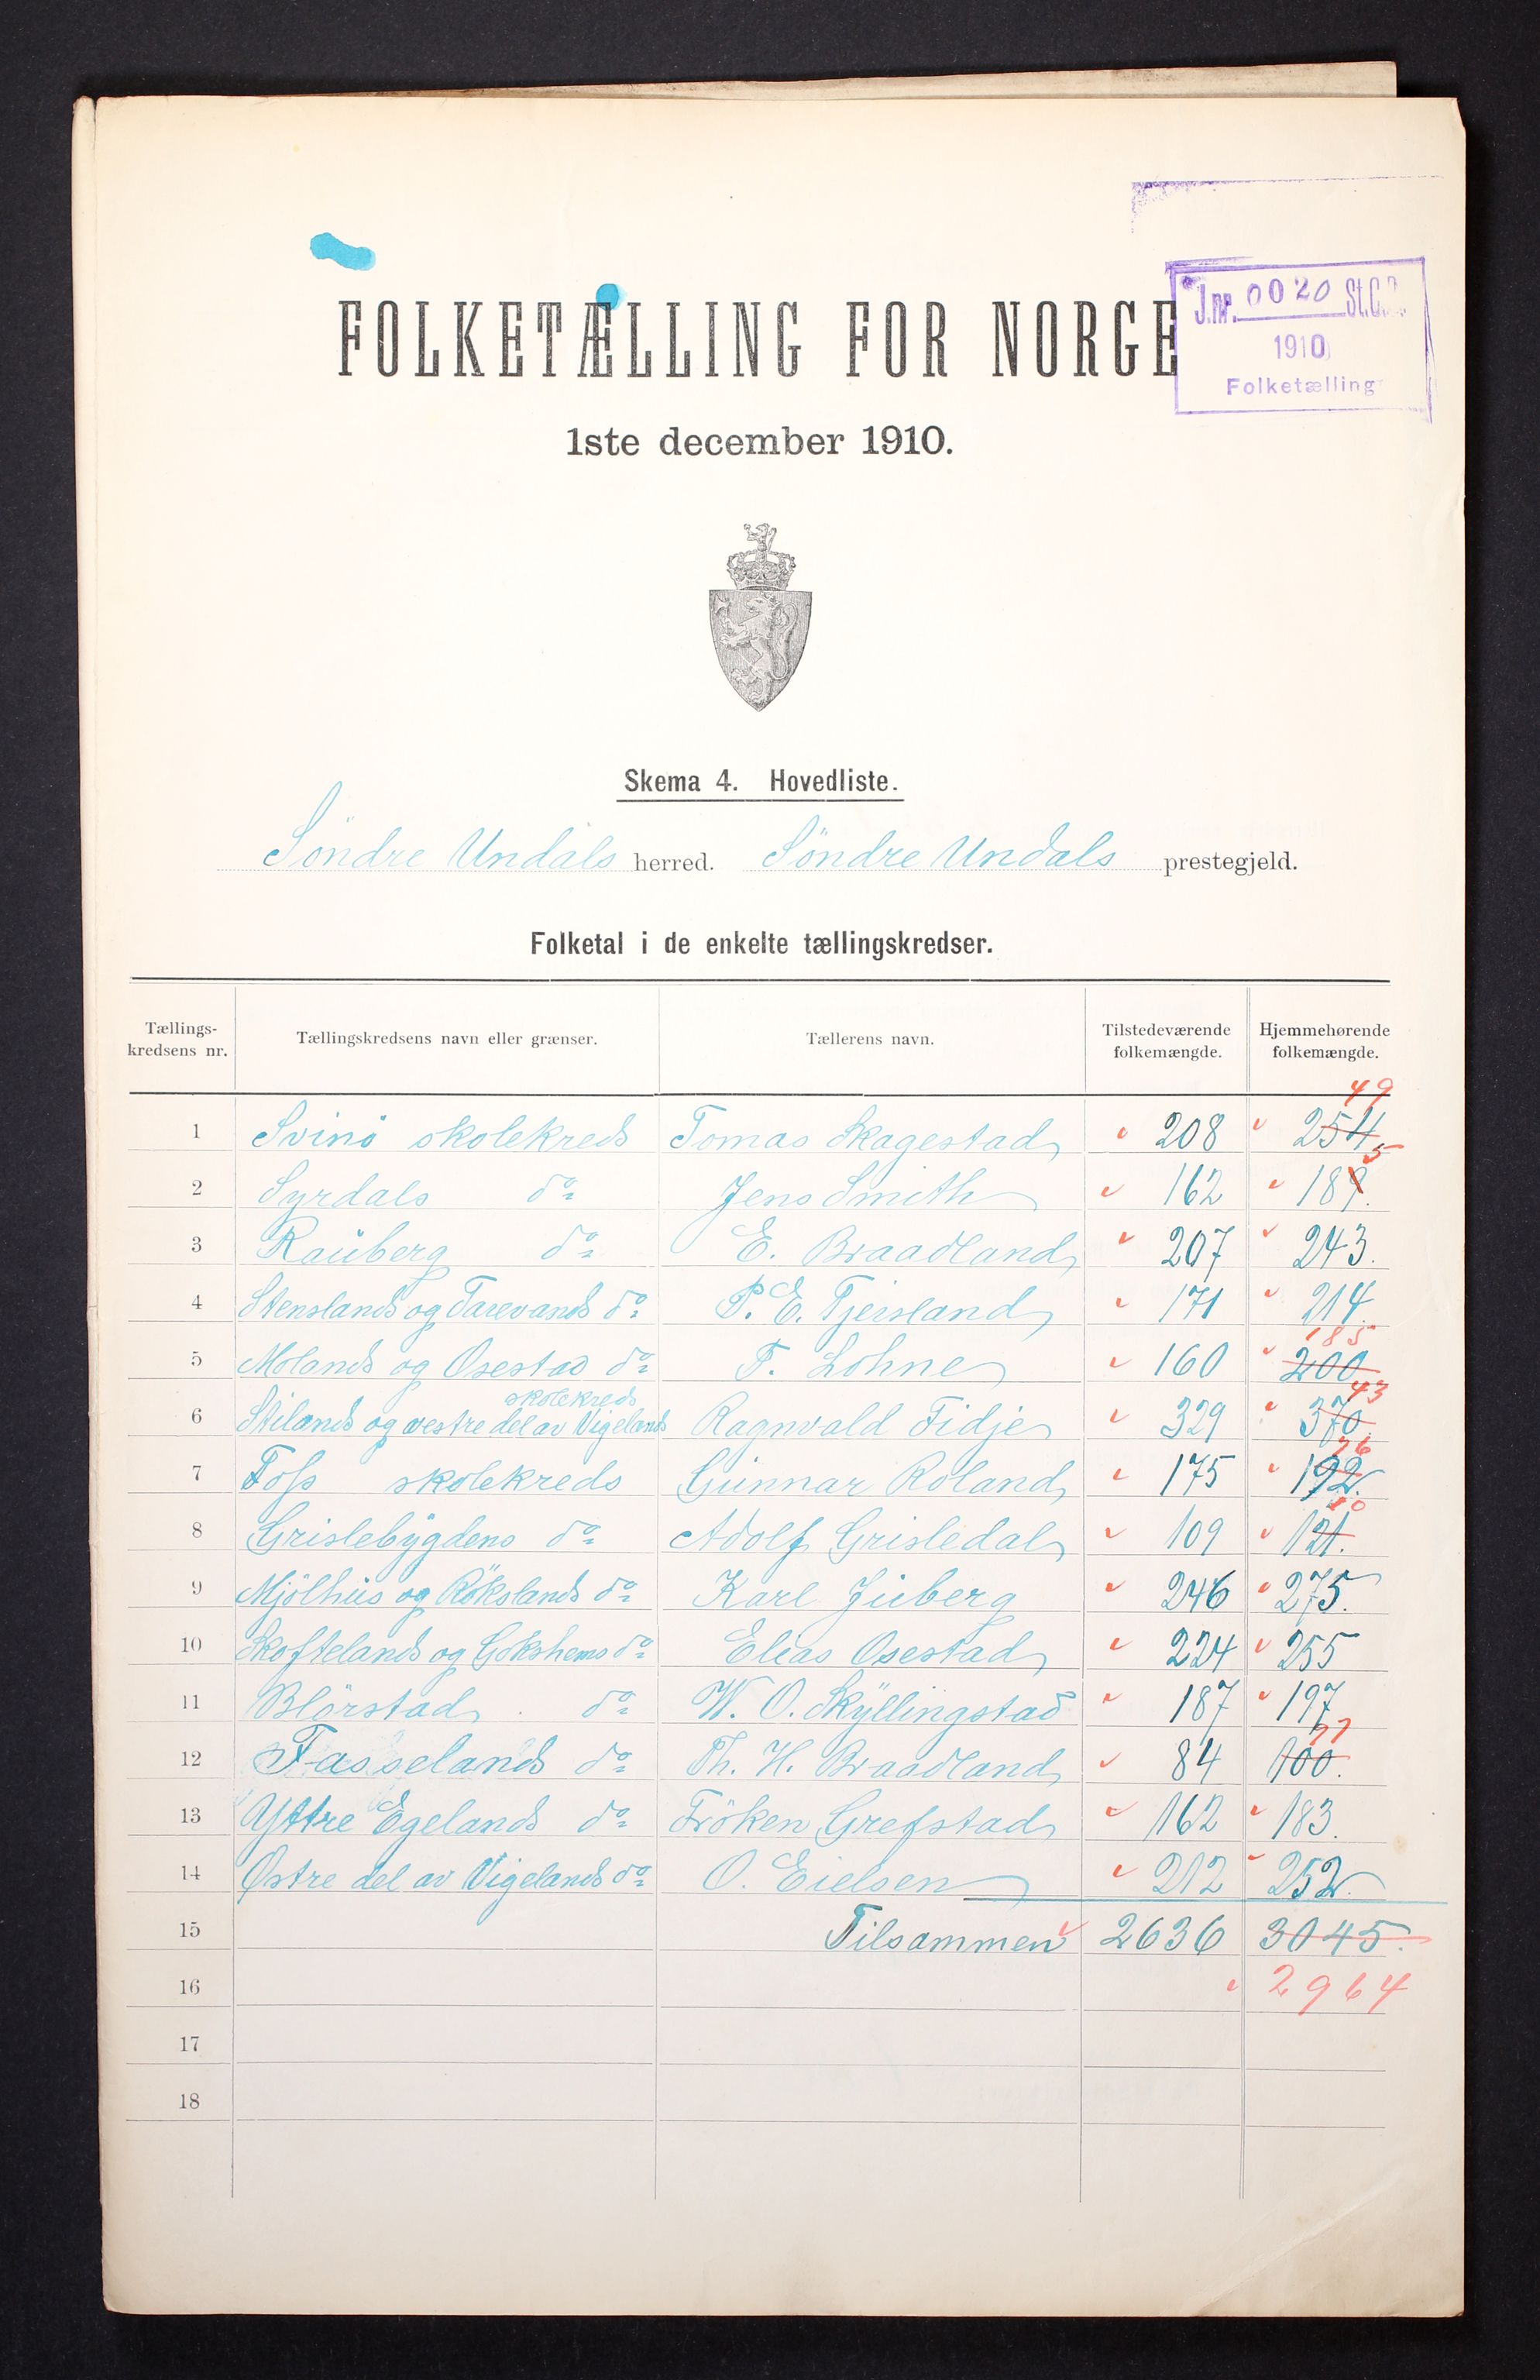 J.nr. 0020 St.C.B.
1910
Folketælling
FOLKETÆLLING FOR NORGE
1ste december 1910.
Skema 4. Hovedliste.
Söndre Undals herred. Söndre Undals prestegjeld.
Folketal i de enkelte tællingskredser.
Tællings-kredsens nr. Tællingskredsens navn eller grænser. Tællerens navn. Tilstedeværende folkemængde. Hjemmehørende folkemængde.
49
1 Svinö skolekreds Tomas Skagestad 208 254
5
2 Syrdals do Jens Smith 162 189.
3 Rauberg do E. Braadland 207 243.
4 Stenslands og Tarevands do P. E. Tjersland 171 214.
185
5 Molands og Osestad do T. Lohne 160 200
skolekreds 43
6 Stilands og vestre del av Vigelands Ragnvald Fidje 329 370
76
7 Foss skolekreds Gunnar Roland 175 192.
10
8 Grislebygdens do Adolf Grisledal 109 121.
9 Mjölhus og Rökslands do Karl Juberg 246 275.
10 Skoftelands og Gökshems do Elias Osestad 224 255
11 Blörstad do W. O. Skyllingstad 187 197
77
12 Fasselands do Th. H. Braadland 84 100.
13 Yttre Egelands do Fröken Grefstad 162 183.
14 Østre del av Vigelands do O. Eielsen 212 252.
15 Tilsammen 2636 3045.
16 2964
17
18